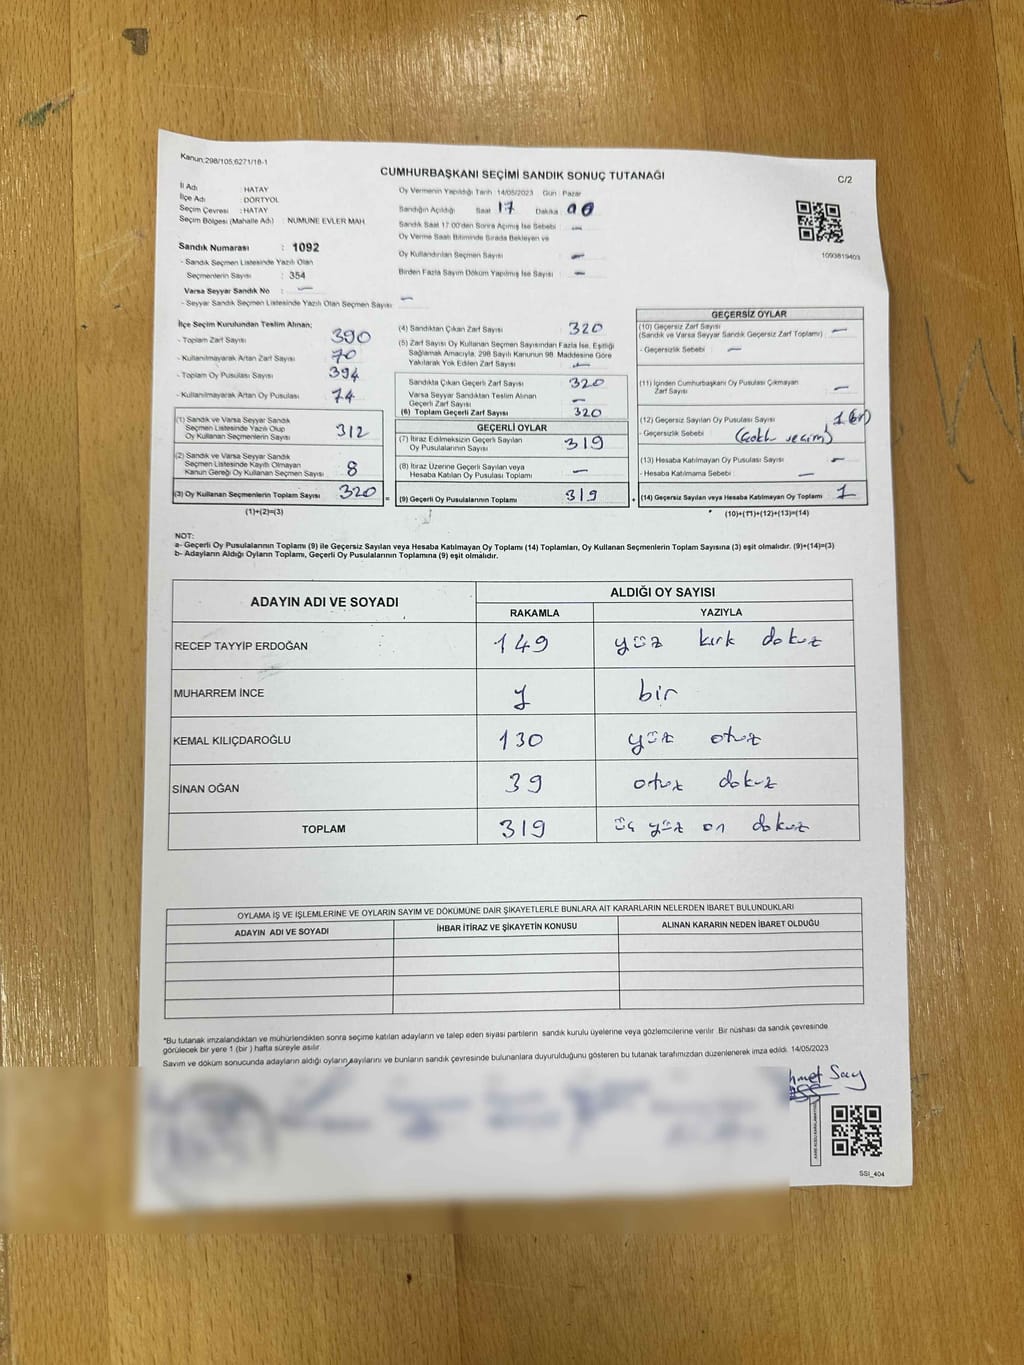 Kanun:298/105,6271/16-1
CUMHURBAŞKANI SEÇİMİ SANDIK SONUÇ TUTANAĞI
C/2
İl Adı : HATAY
İlçe Adı : DÖRTYOL
Seçim Çevresi : HATAY
Seçim Bölgesi (Mahalle Adı) : NUMUNE EVLER MAH.
Sandık Numarası : 1092
- Sandık Seçmen Listesinde Yazılı Olan
Seçmenlerin Sayısı : 354
Varsa Seyyar Sandık No : —
- Seyyar Sandık Seçmen Listesinde Yazılı Olan Seçmen Sayısı : —
Oy Vermenin Yapıldığı Tarih 14/05/2023 Gün : Pazar
Sandığın Açıldığı Saat 17 Dakika 00
Sandık Saat 17:00'den Sonra Açımış İse Sebebi —
Oy Verme Saati Bitiminde Sırada Bekleyen ve
Oy Kullandırılan Seçmen Sayısı —
Birden Fazla Sayım Döküm Yapılmış İse Sayısı : —
1093819403
İlçe Seçim Kurulundan Teslim Alınan;
- Toplam Zarf Sayısı : 390
- Kullanılmayarak Artan Zarf Sayısı : 70
- Toplam Oy Pusulası Sayısı : 394
- Kullanılmayarak Artan Oy Pusulası : 74
(1) Sandık ve Varsa Seyyar Sandık
Seçmen Listesinde Yazılı Olup
Oy Kullanan Seçmenlerin Sayısı : 312
(2) Sandık ve Varsa Seyyar Sandık
Seçmen Listesinde Kayıtlı Olmayan
Kanun Gereği Oy Kullanan Seçmen Sayısı : 8
(3) Oy Kullanan Seçmenlerin Toplam Sayısı : 320
(1)+(2)=(3)
=
(4) Sandıktan Çıkan Zarf Sayısı : 320
(5) Zarf Sayısı Oy Kullanan Seçmen Sayısından Fazla İse, Eşitliği
Sağlamak Amacıyla, 298 Sayılı Kanunun 98. Maddesine Göre
Yakılarak Yok Edilen Zarf Sayısı : —
Sandıkta Çıkan Geçerli Zarf Sayısı : 320
Varsa Seyyar Sandıktan Teslim Alınan
Geçerli Zarf Sayısı : —
(6) Toplam Geçerli Zarf Sayısı : 320
GEÇERLİ OYLAR
(7) İtiraz Edilmeksizin Geçerli Sayılan
Oy Pusulalarının Sayısı : 319
(8) İtiraz Üzerine Geçerli Sayılan veya
Hesaba Katılan Oy Pusulası Toplamı : —
(9) Geçerli Oy Pusulalarının Toplamı : 319
+
GEÇERSİZ OYLAR
(10) Geçersiz Zarf Sayısı
(Sandık ve Varsa Seyyar Sandık Geçersiz Zarf Toplamı) : —
- Geçersizlik Sebebi : —
(11) İçinden Cumhurbaşkanı Oy Pusulası Çıkmayan
Zarf Sayısı : —
(12) Geçersiz Sayılan Oy Pusulası Sayısı : 1 (bir)
- Geçersizlik Sebebi :
(13) Hesaba Katılmayan Oy Pusulası Sayısı : —
- Hesaba Katılmama Sebebi : —
(14) Geçersiz Sayılan veya Hesaba Katılmayan Oy Toplamı : 1
(10)+(11)+(12)+(13)=(14)
NOT:
a- Geçerli Oy Pusulalarının Toplamı (9) ile Geçersiz Sayılan veya Hesaba Katılmayan Oy Toplamı (14) Toplamları, Oy Kullanan Seçmenlerin Toplam Sayısına (3) eşit olmalıdır. (9)+(14)=(3)
b- Adayların Aldığı Oyların Toplamı, Geçerli Oy Pusulalarının Toplamına (9) eşit olmalıdır.
ADAYIN ADI VE SOYADI ALDIĞI OY SAYISI
RAKAMLA YAZIYLA
RECEP TAYYİP ERDOĞAN 149 yüz kırk dokuz
MUHARREM İNCE 1 bir
KEMAL KILIÇDAROĞLU 130 yüz otuz
SİNAN OĞAN 39 otuz dokuz
TOPLAM 319 üç yüz on dokuz
OYLAMA İŞ VE İŞLEMLERİNE VE OYLARIN SAYIM VE DÖKÜMÜNE DAİR ŞİKAYETLERLE BUNLARA AİT KARARLARIN NELERDEN İBARET BULUNDUKLARI
ADAYIN ADI VE SOYADI İHBAR İTİRAZ VE ŞİKAYETİN KONUSU ALINAN KARARIN NEDEN İBARET OLDUĞU
*Bu tutanak imzalandıktan ve mühürlendikten sonra seçime katılan adayların ve talep eden siyasi partilerin sandık kurulu üyelerine veya gözlemcilerine verilir .Bir nüshası da sandık çevresinde
görülecek bir yere 1 (bir ) hafta süreyle asılır.
Sayım ve döküm sonucunda adayların aldığı oyların sayılarını ve bunların sandık çevresinde bulunanlara duyurulduğunu gösteren bu tutanak tarafımızdan düzenlenerek imza edildi. 14/05/2023
hmet Say
SSI_404